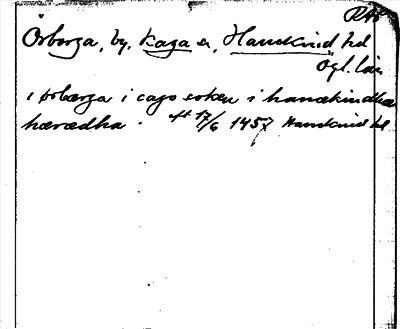 RAP
Örberga, by, Kaga sn, Hanekind hd
Ögl. län
i ørbærga i cago soken i hanækindhæ
hæradha . A 17/6 1457 Hanekind hd